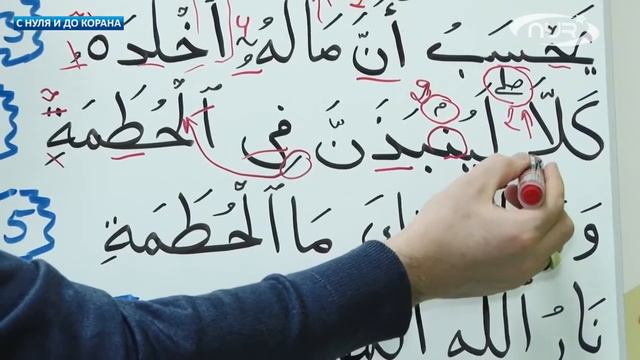 С НУЛЯ И ДО КОРАНА
يَحْسَبُ أَنَّ مَالَهُۥٓ أَخْلَدَهُۥ
كَلَّا لَيُنۢبَذَنَّ فِى ٱلْحُطَمَةِ
مَا ٱلْحُطَمَةُ
نَارُ ٱللَّهِ
5